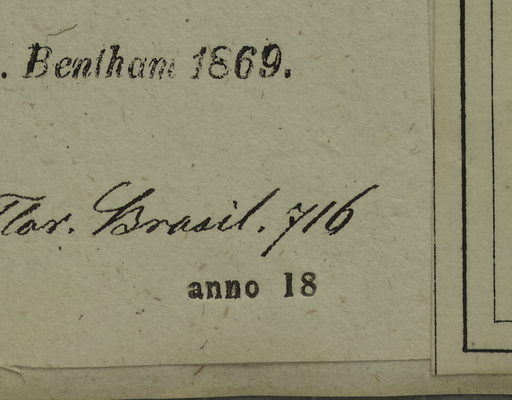 . Bentham 1869.
Flor. Brasil. 716
anno 18